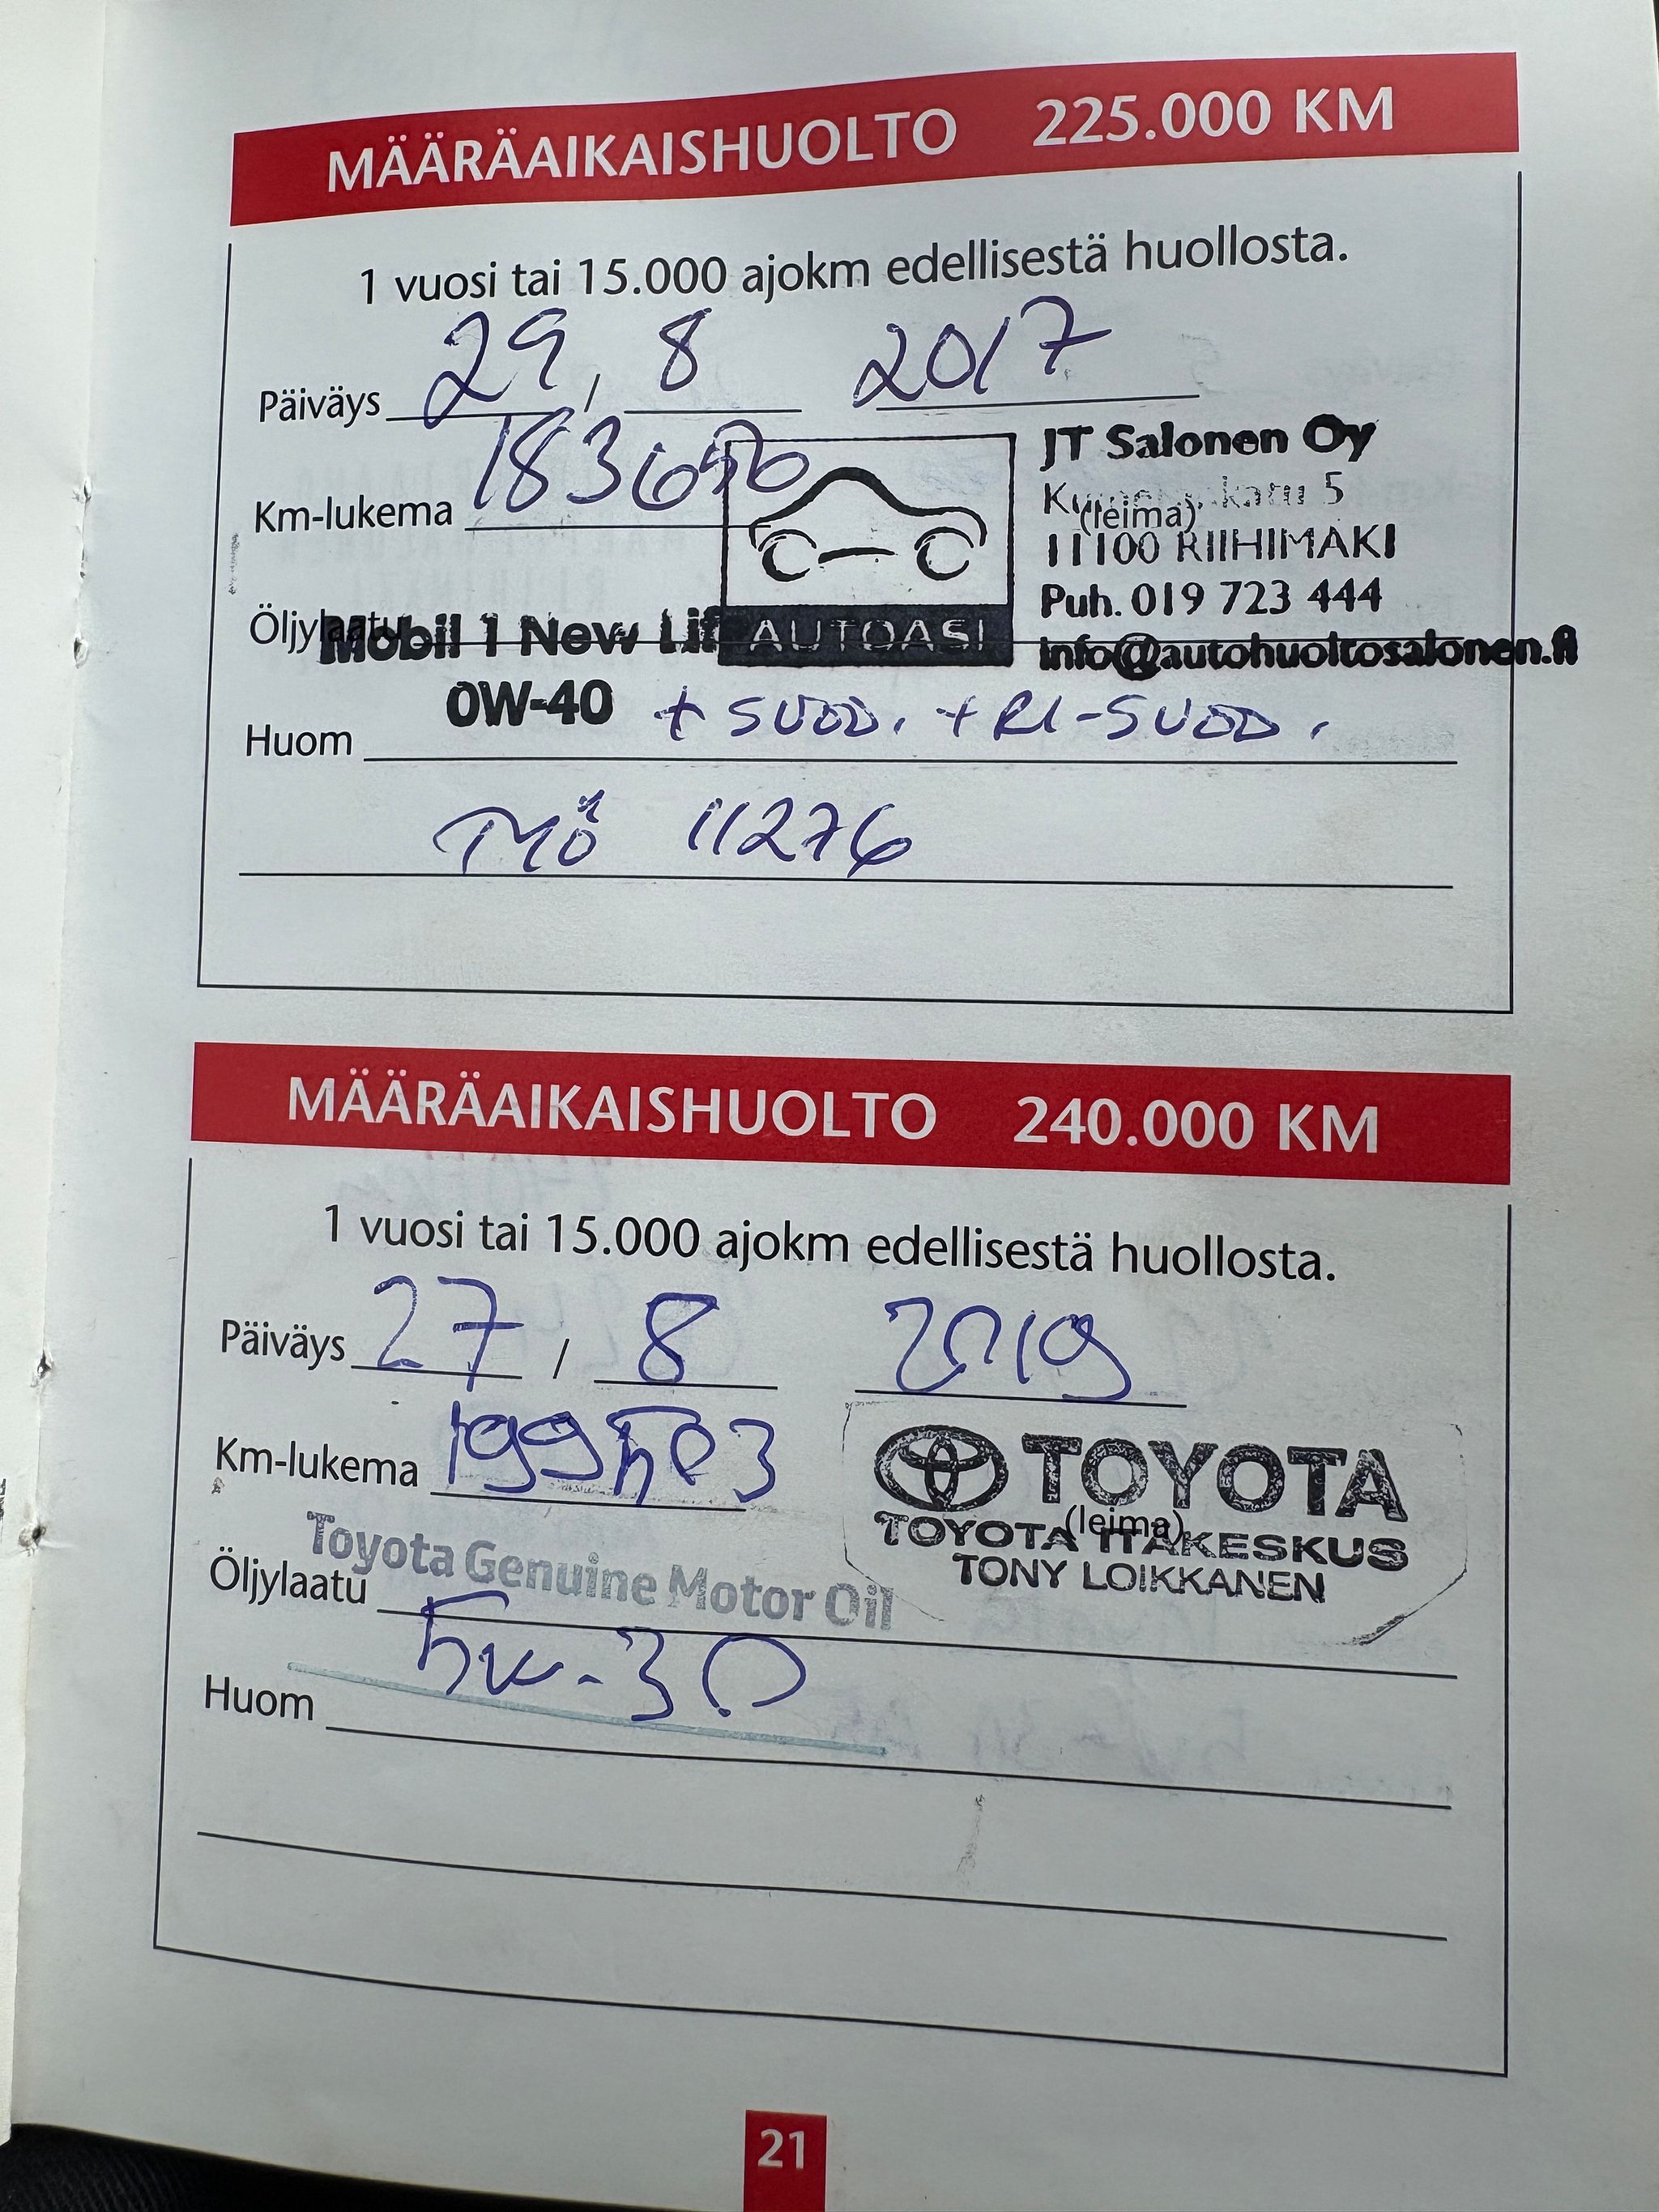 MÄÄRÄAIKAISHUOLTO 225.000 KM
1 vuosi tai 15.000 ajokm edellisestä huollosta.
Päiväys 29 / 8 2017
Km-lukema
JT Salonen Oy
5
(leima)
11100 RIIHIMÄKI
Puh. 019 723 444
info@autohuoltosalonen.fi
Öljylaatu Mobil 1 New Lif
AUTOASI
0W-40 + SUOD. + RI-SUOD.
Huom
MÖ 11276
MÄÄRÄAIKAISHUOLTO 240.000 KM
1 vuosi tai 15.000 ajokm edellisestä huollosta.
Päiväys 27 / 8 2019
Km-lukema 199503
TOYOTA
(leima)
TOYOTA ITÄKESKUS
TONY LOIKKANEN
Öljylaatu Toyota Genuine Motor Oil
5w-30
Huom
21